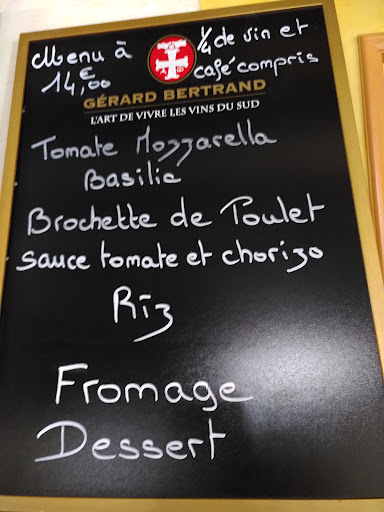 Menu à
14,00€
1/4 de vin et
café compris
GÉRARD BERTRAND
L'ART DE VIVRE LES VINS DU SUD
Tomate Mozzarella
Basilic
Brochette de Poulet
sauce tomate et chorizo
Riz
Fromage
Dessert